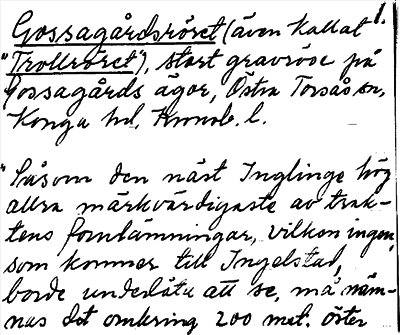 1.
Gossagårdsröset (även kallat
"Trollröset"), stort gravröse på
Gossagårds ägor, Östra Torsås sn,
Konga hd, Kronob. l.
"Såsom den näst Inglinge hög
allra märkvärdigaste av trak-
tens fornlämningar, vilken ingen,
som kommer till Ingelstad,
borde underlåta att se, må näm-
nas det omkring 200 met. öster